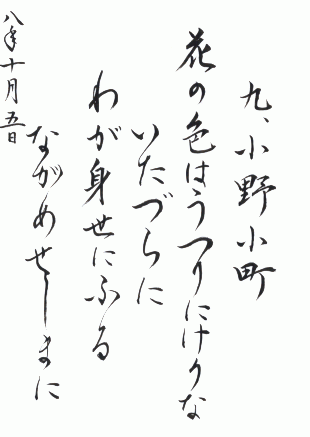 九、小野小町
花の色はうつりにけりな
いたづらに
わが身世にふる
ながめせしまに
八年十月五日